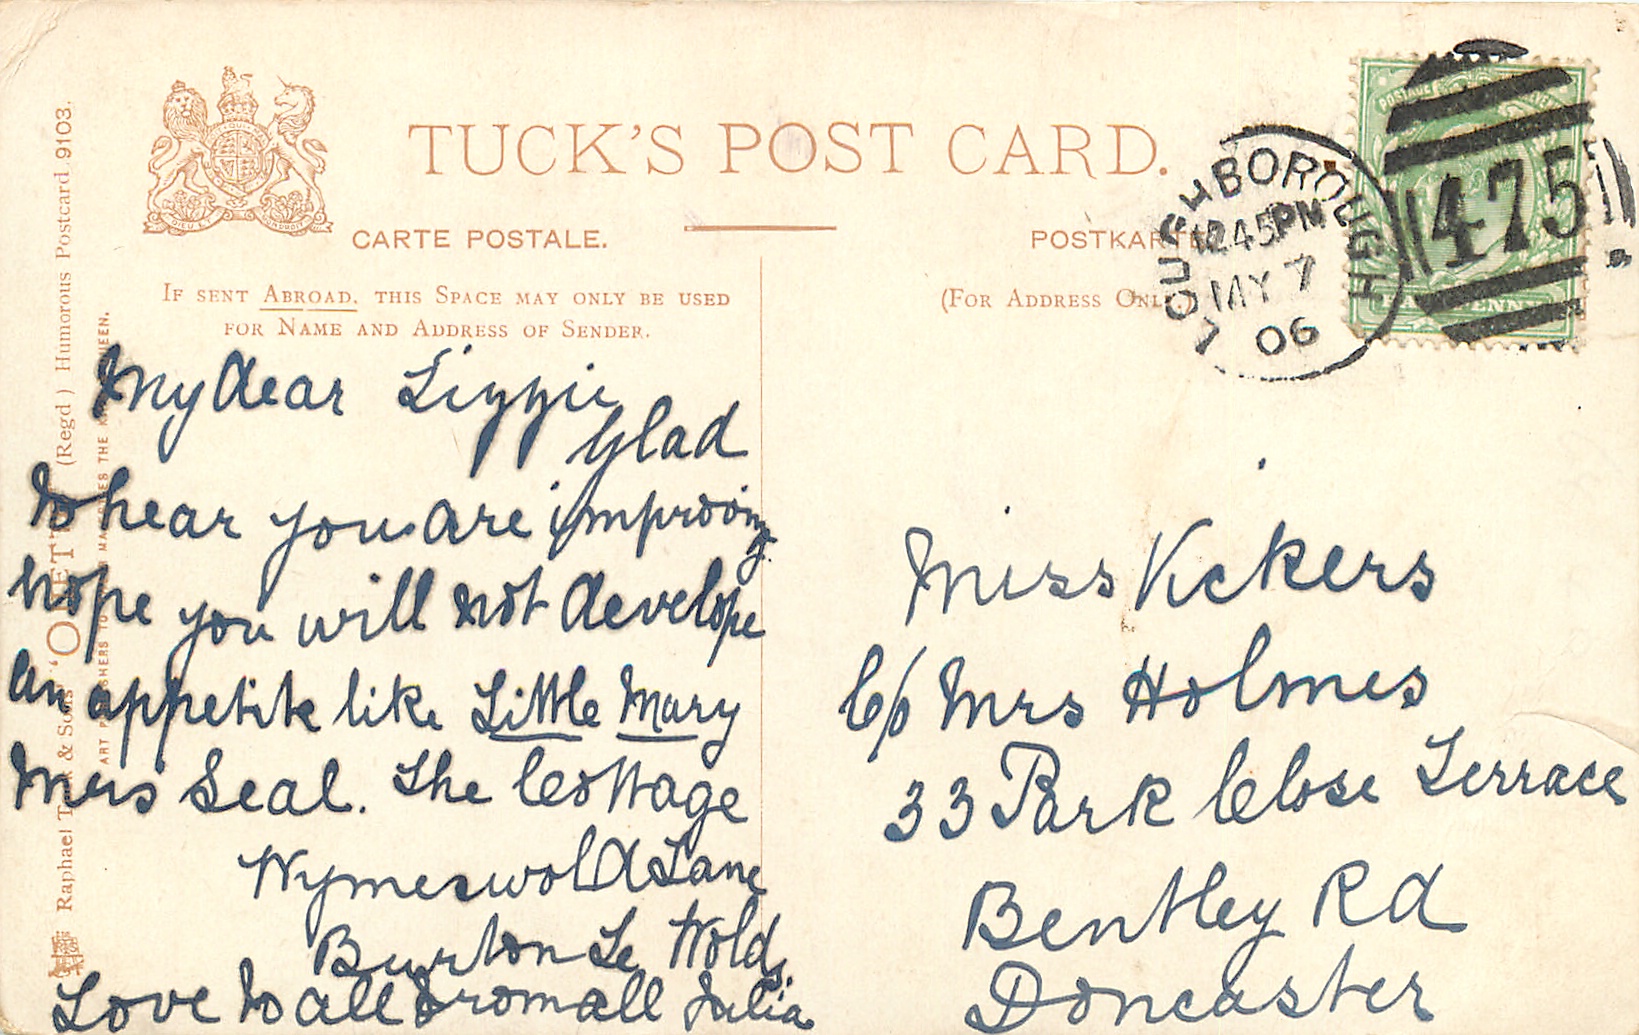 TUCK'S POST CARD.
CARTE POSTALE.
POSTKARTE
IF SENT ABROAD, THIS SPACE MAY ONLY BE USED
FOR NAME AND ADDRESS OF SENDER.
(FOR ADDRESS ONLY.
LOUGHBOROUGH
12.45PM
MY 7
06
475
POSTAGE
My dear Lizzie
Glad
to hear you are improving
hope you will not develope
an appetite like Little Mary
Mrs Seal. The Cottage
Wymeswold Lane
Burton Le Wolds.
Love to all from all Julia
Miss Vickers
C/o Mrs Holmes
33 Park Close Terrace
Bentley Rd
Doncaster
Raphael Tuck & Sons' "OILETTE" (Regd) Humorous Postcard 9103.
ART PUBLISHERS TO MAJESTIES THE KING QUEEN.